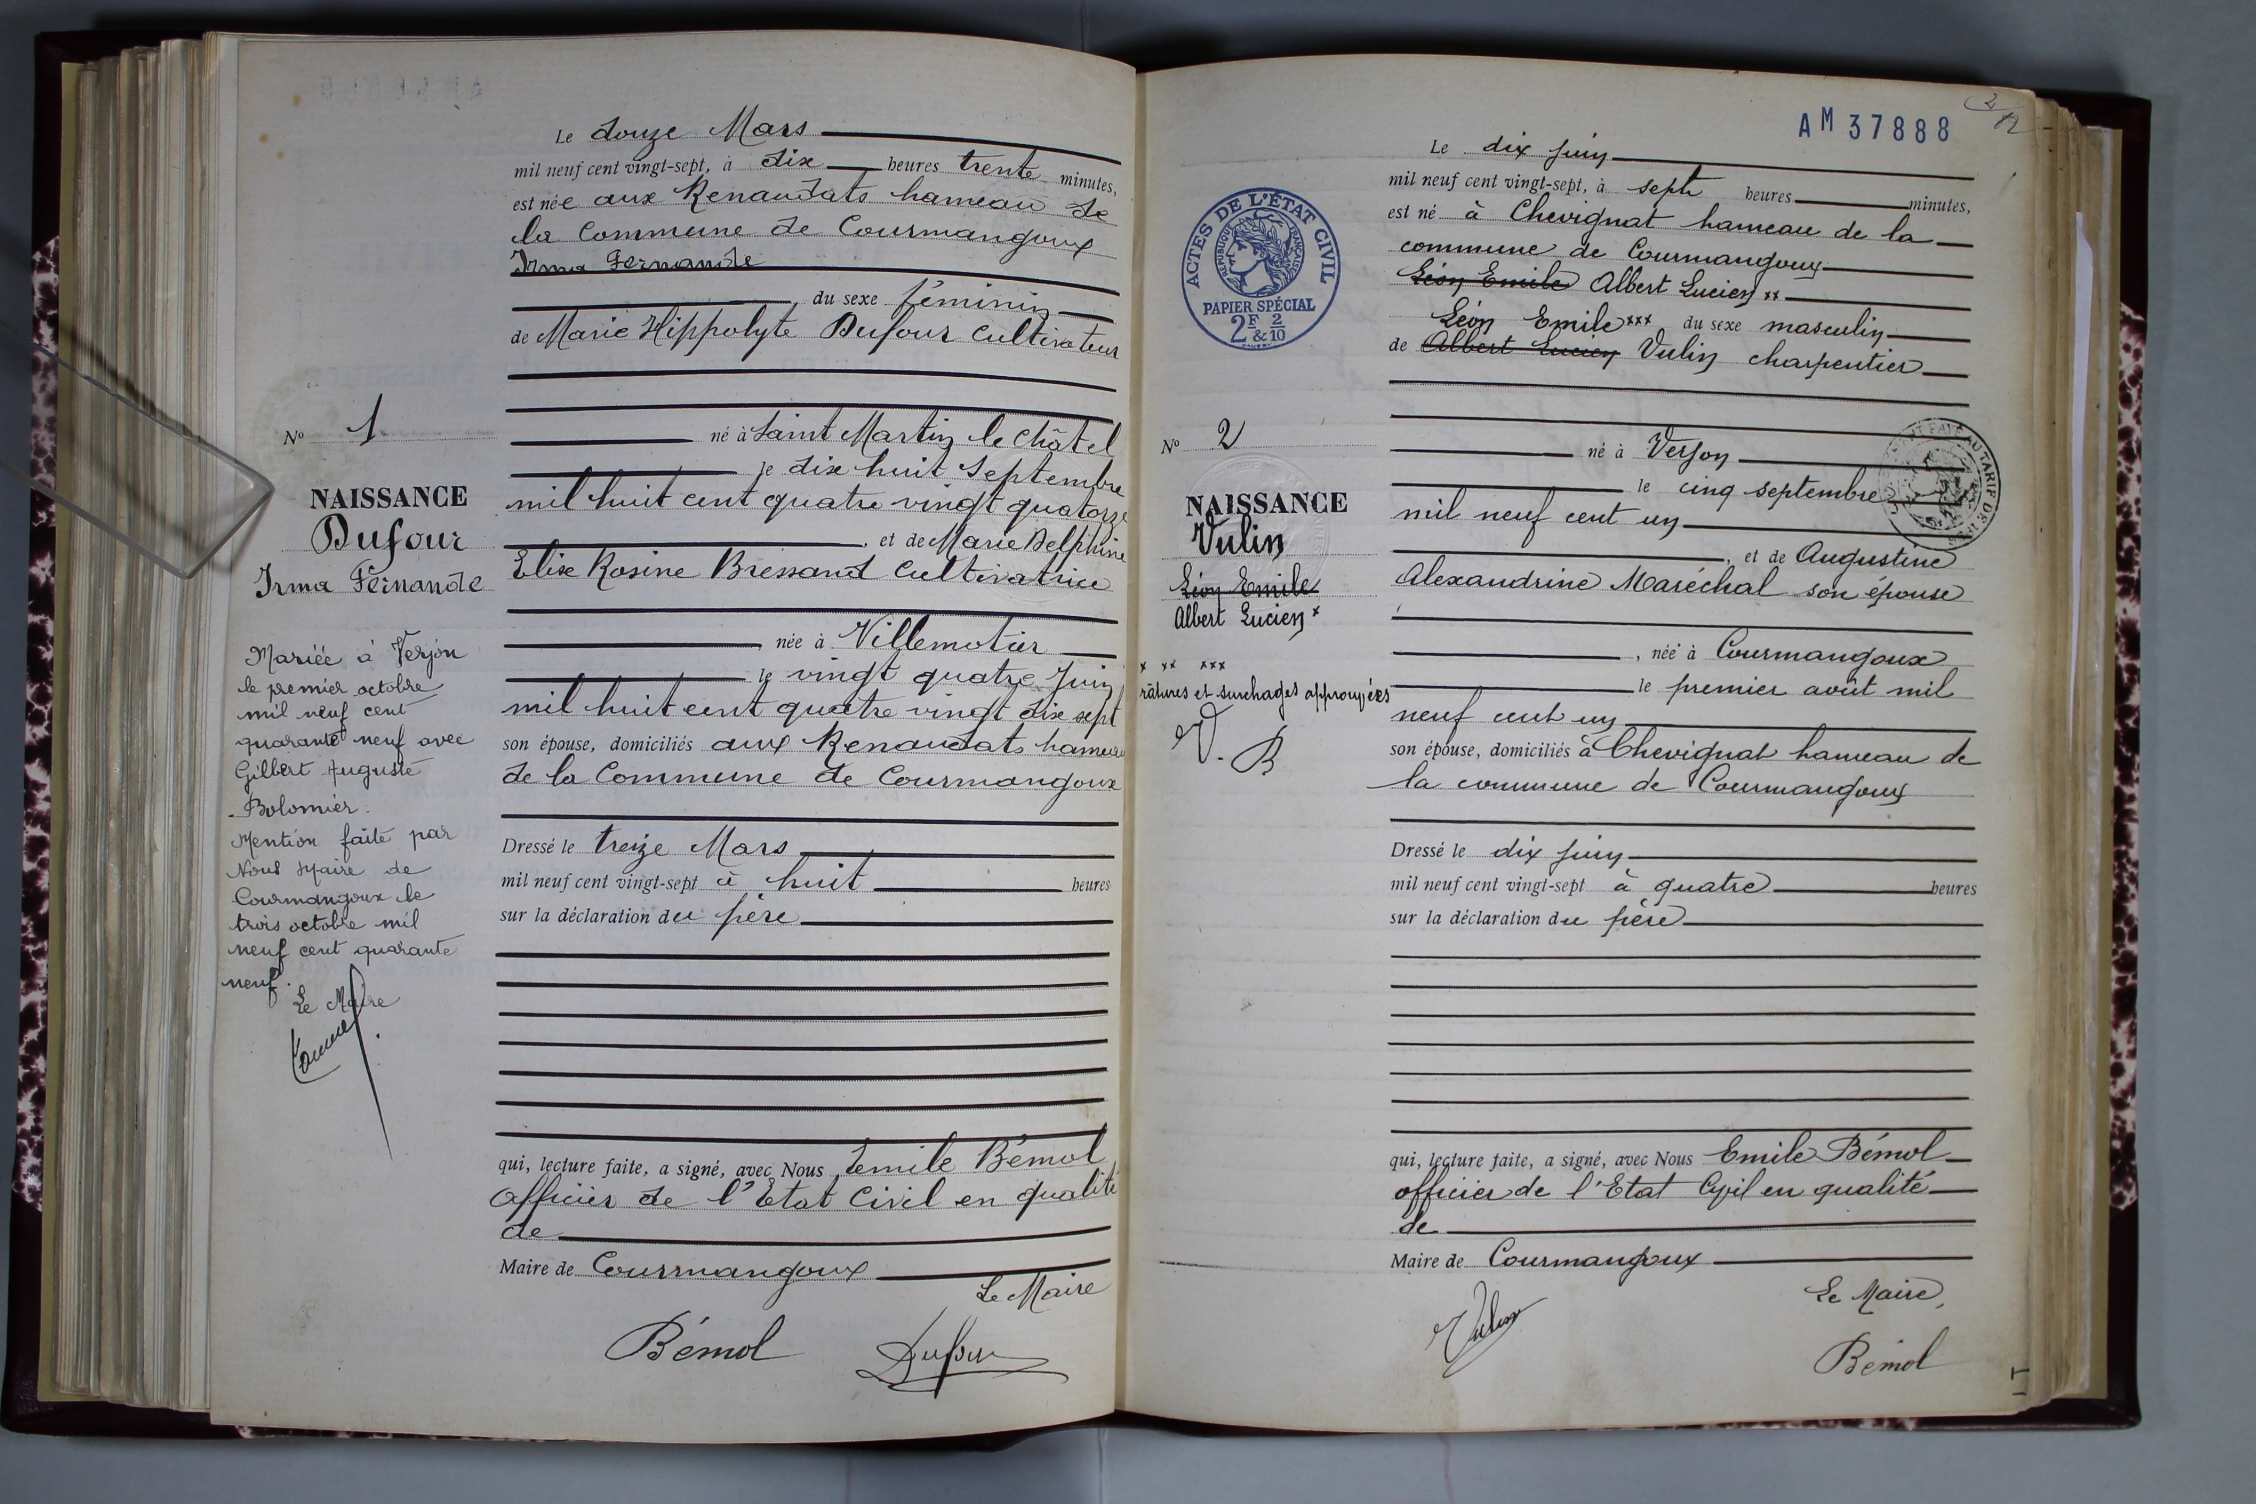 Le douze Mars
mil neuf cent vingt-sept, à dix heures trente minutes,
est née aux Renaudats hameau de
la Commune de Courmangoux
Irma Fernande
du sexe féminin
de Marie Hippolyte Dufour cultivateur
né à Saint Martin le Châtel
le dix huit Septembre
mil huit cent quatre vingt quatorze
et de Marie Delphine
Elise Rosine Bressand cultivatrice
née à Villemotier
le vingt quatre Juin
mil huit cent quatre vingt dix sept
son épouse, domiciliés aux Renaudats hameau
de la Commune de Courmangoux
Dressé le treize Mars
mil neuf cent vingt-sept à huit heures
sur la déclaration du père
qui, lecture faite, a signé, avec Nous Emile Bémol
officier de l'Etat Civil en qualité
de
Maire de Courmangoux
Le Maire
Bémol Dufour
No 1
NAISSANCE
Dufour
Irma Fernande
Mariée à Verjon
le premier octobre
mil neuf cent
quarante neuf avec
Gilbert Auguste
Bolomier.
Mention faite par
Nous Maire de
Courmangoux le
trois octobre mil
neuf cent quarante
neuf.
Le Maire
AM 37888
2
Le dix juin
mil neuf cent vingt-sept, à sept heures minutes,
est né à Chevignat hameau de la
commune de Courmangoux
Léon Emile Albert Lucien xx
Léon Emile xxx du sexe masculin
de Albert Lucien Vulin charpentier
né à Verjon
le cinq septembre
mil neuf cent un
et de Augustine
Alexandrine Maréchal son épouse
, née à Courmangoux
le premier août mil
neuf cent un
son épouse, domiciliés à Chevignat hameau de
la commune de Courmangoux
Dressé le dix juin
mil neuf cent vingt-sept à quatre heures
sur la déclaration du père
qui, lecture faite, a signé, avec Nous Emile Bémol
officier de l'Etat Civil en qualité
de
Maire de Courmangoux
Le Maire,
Vulin
Bémol
ACTES DE L'ÉTAT CIVIL
RÉPUBLIQUE FRANÇAISE
PAPIER SPÉCIAL
2F & 2/10
No 2
NAISSANCE
Vulin
Léon Emile
Albert Lucien x
x xx xxx
râtures et surchages approuvées
V. B